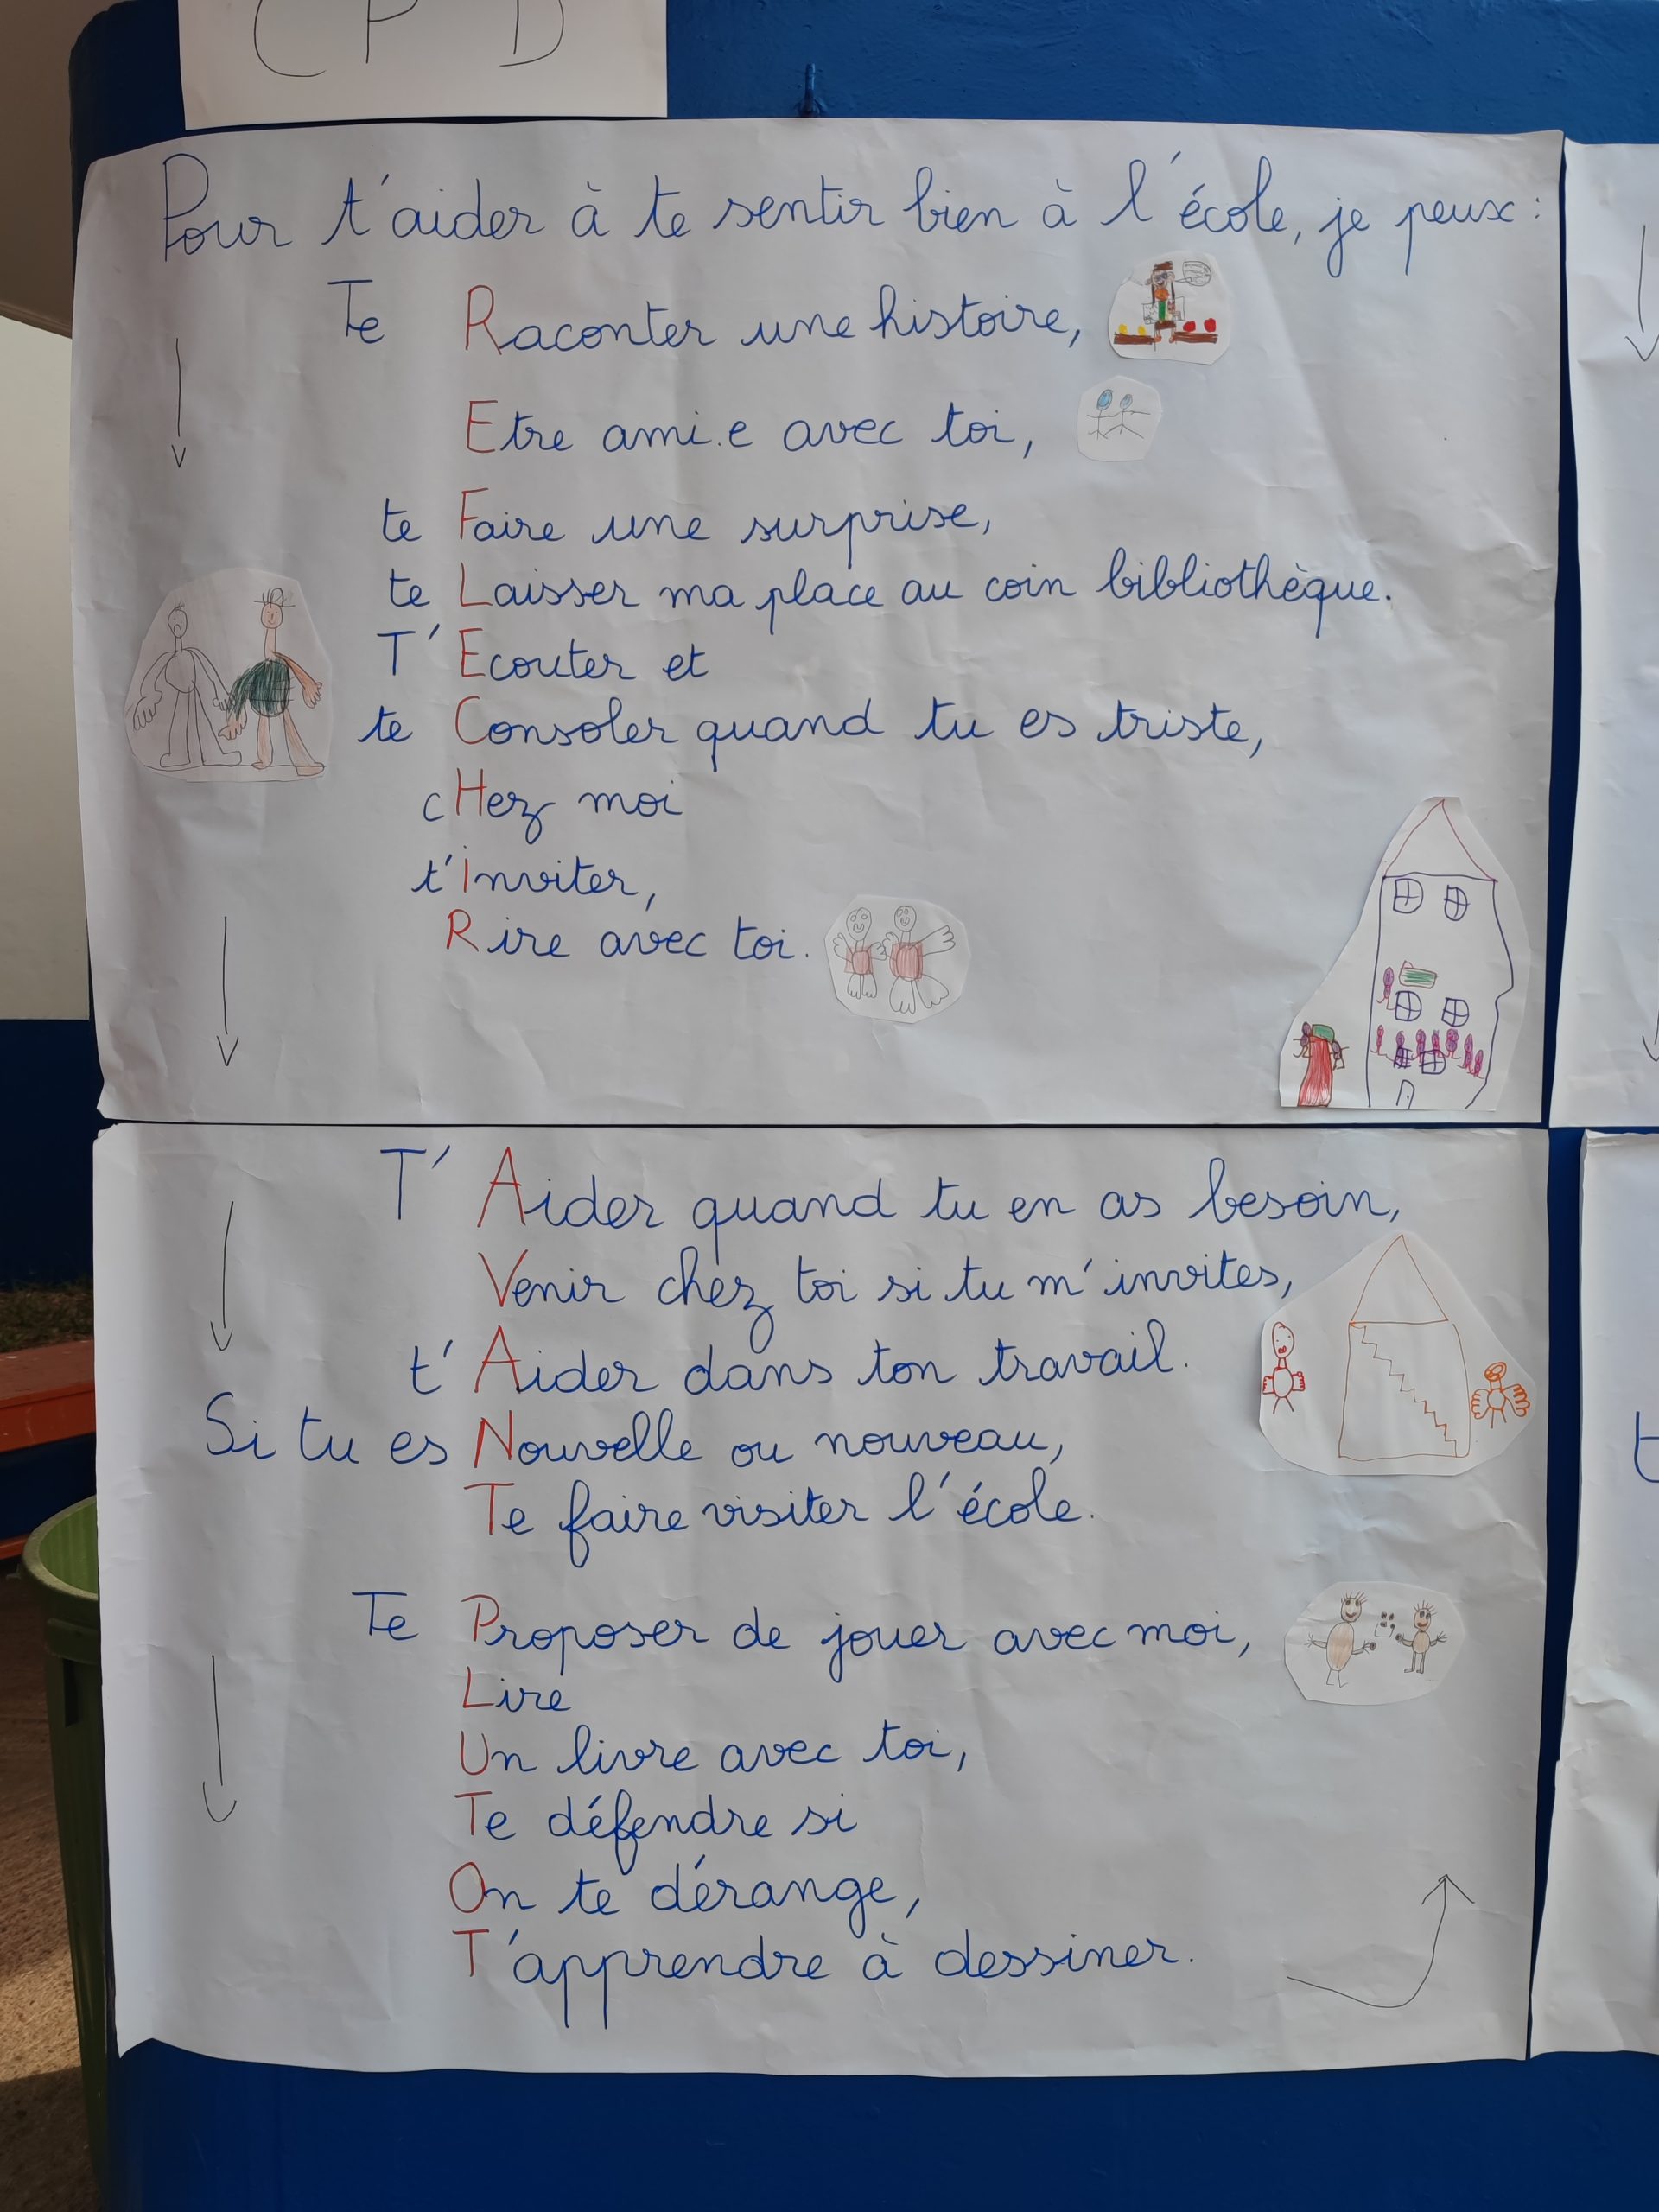 CPD
Pour t'aider à te sentir bien à l'école, je peux :
Te Raconter une histoire,
Etre ami.e avec toi,
te Faire une surprise,
te Laisser ma place au coin bibliothèque.
T'Ecouter et
te Consoler quand tu es triste,
cHez moi
t'Inviter,
Rire avec toi.
T'Aider quand tu en as besoin,
Venir chez toi si tu m'invites,
t'Aider dans ton travail.
Si tu es Nouvelle ou nouveau,
Te faire visiter l'école.
Te Proposer de jouer avec moi,
Lire
Un livre avec toi,
Te défendre si
On te dérange,
T'apprendre à dessiner.
t